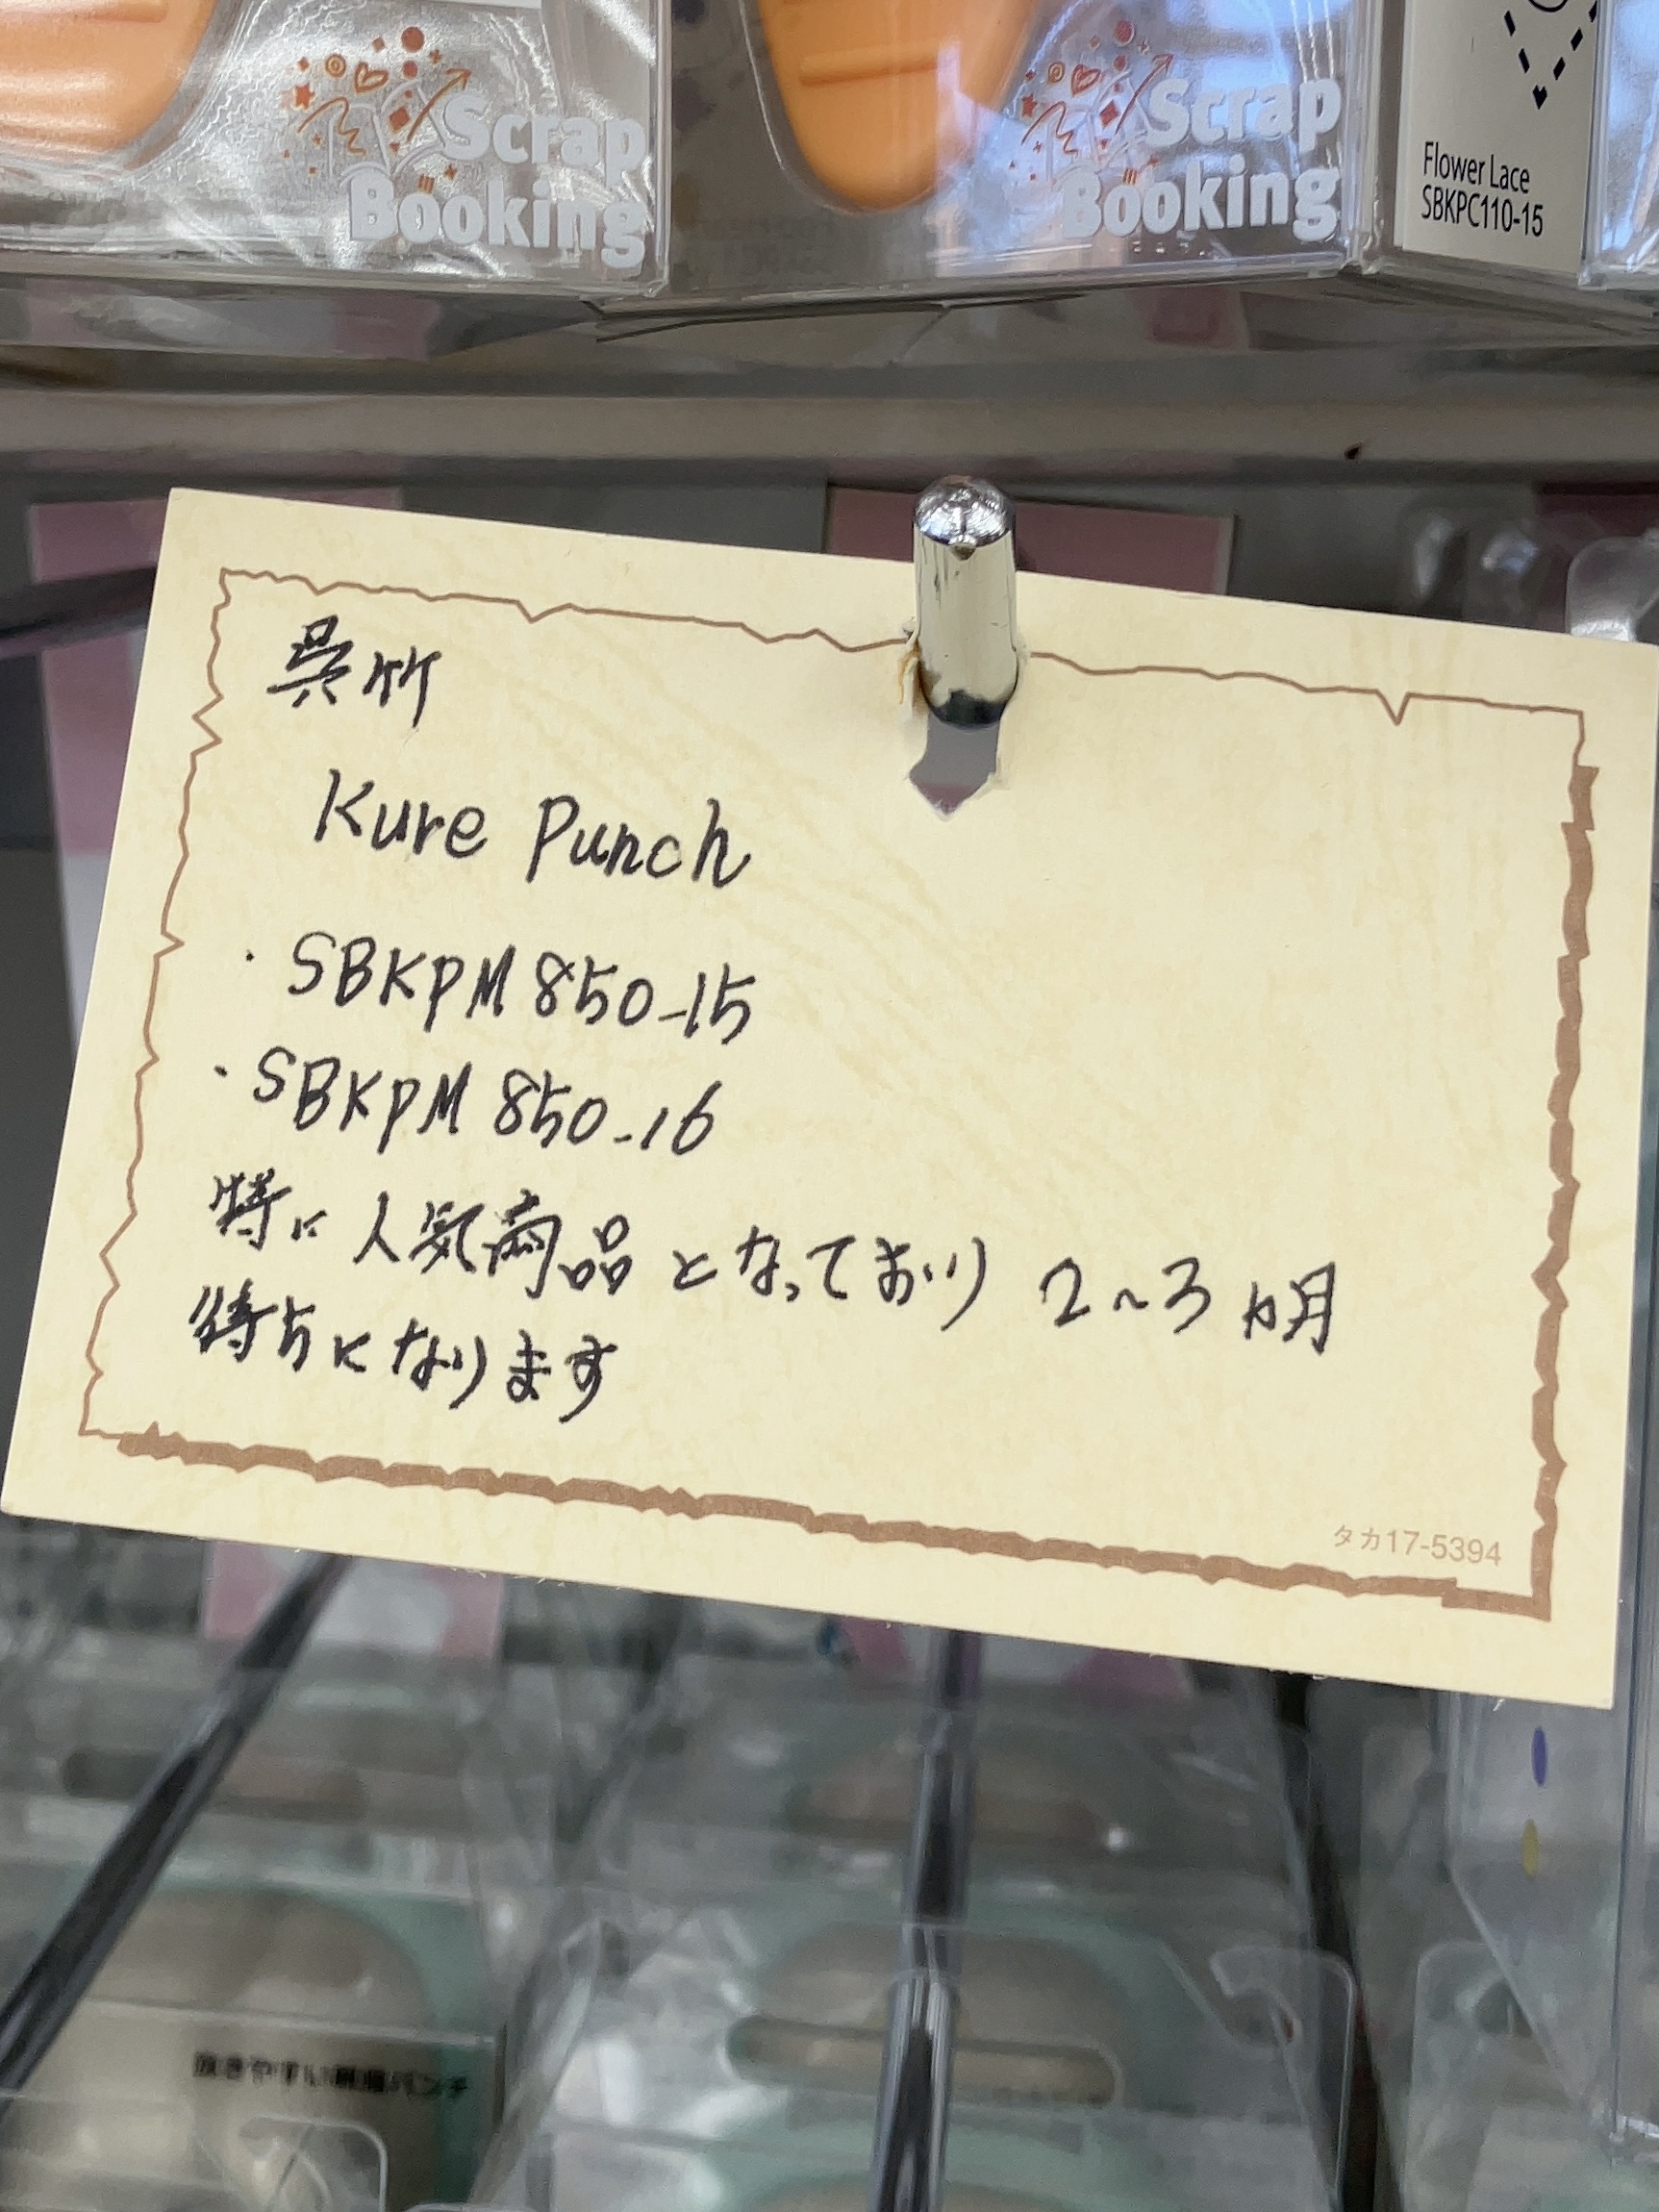 Scrap
Booking
Scrap
Booking
Flower Lace
SBKPC110-15
呉竹
Kure Punch
・SBKPM850-15
・SBKPM850-16
特に人気商品となっており 2~3ヵ月
待ちになります
タカ17-5394